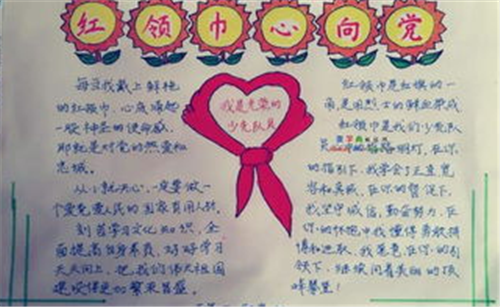 红领巾心向党
每当我戴上鲜艳
的红领巾，心底涌起
一股神圣的使命感，
那就是对党的热爱和
忠诚。
从小就决心，一定要做一
个爱党爱人民的国家有用人材。
刻苦学习文化知识，全
面提高自身素质，好好学习
天天向上，把我们伟大祖国
建设得更加繁荣昌盛。
我是光荣的
少先队员
红领巾是红旗的一
角，是用烈士的鲜血染成
红领巾是我们少先队
员 指路明灯，在你
的指引下，我学会了正直宽
容和真诚，在你的督促下，
我坚守诚信，勤奋努力，在
你的怀抱中我懂得勇敢拼
搏和进取，我愿意在你的引
领下，继续向着美丽的顶
峰攀登！